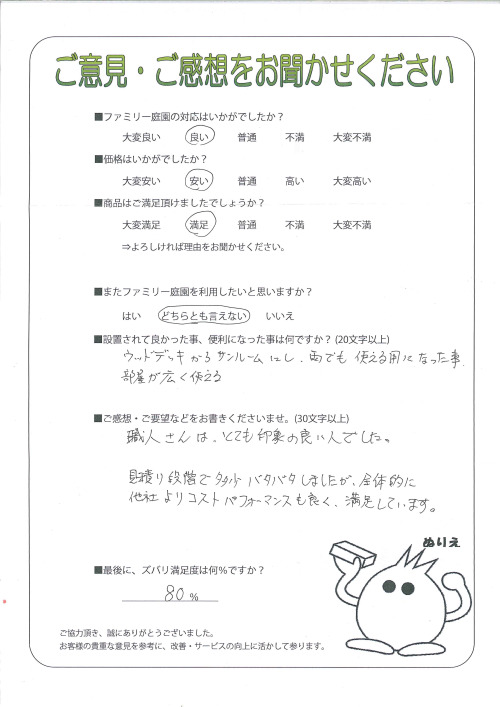 ご意見・ご感想をお聞かせください
■ファミリー庭園の対応はいかがでしたか？
大変良い 良い 普通 不満 大変不満
■価格はいかがでしたか？
大変安い 安い 普通 高い 大変高い
■商品はご満足頂けましたでしょうか？
大変満足 満足 普通 不満 大変不満
⇒よろしければ理由をお聞かせください。
■またファミリー庭園を利用したいと思いますか？
はい どちらとも言えない いいえ
■設置されて良かった事、便利になった事は何ですか？(20文字以上)
ウッドデッキからサンルームにし、雨でも使える用になった事.
部屋が広く使える
■ご感想・ご要望などをお書きくださいませ。(30文字以上)
職人さんは、とても印象の良い人でした。
見積り段階で バタバタしましたが、全体的に
他社よりコストパフォーマンスも良く、満足しています。
ぬりえ
■最後に、ズバリ満足度は何％ですか？
80 %
ご協力頂き、誠にありがとうございました。
お客様の貴重な意見を参考に、改善・サービスの向上に活かして参ります。